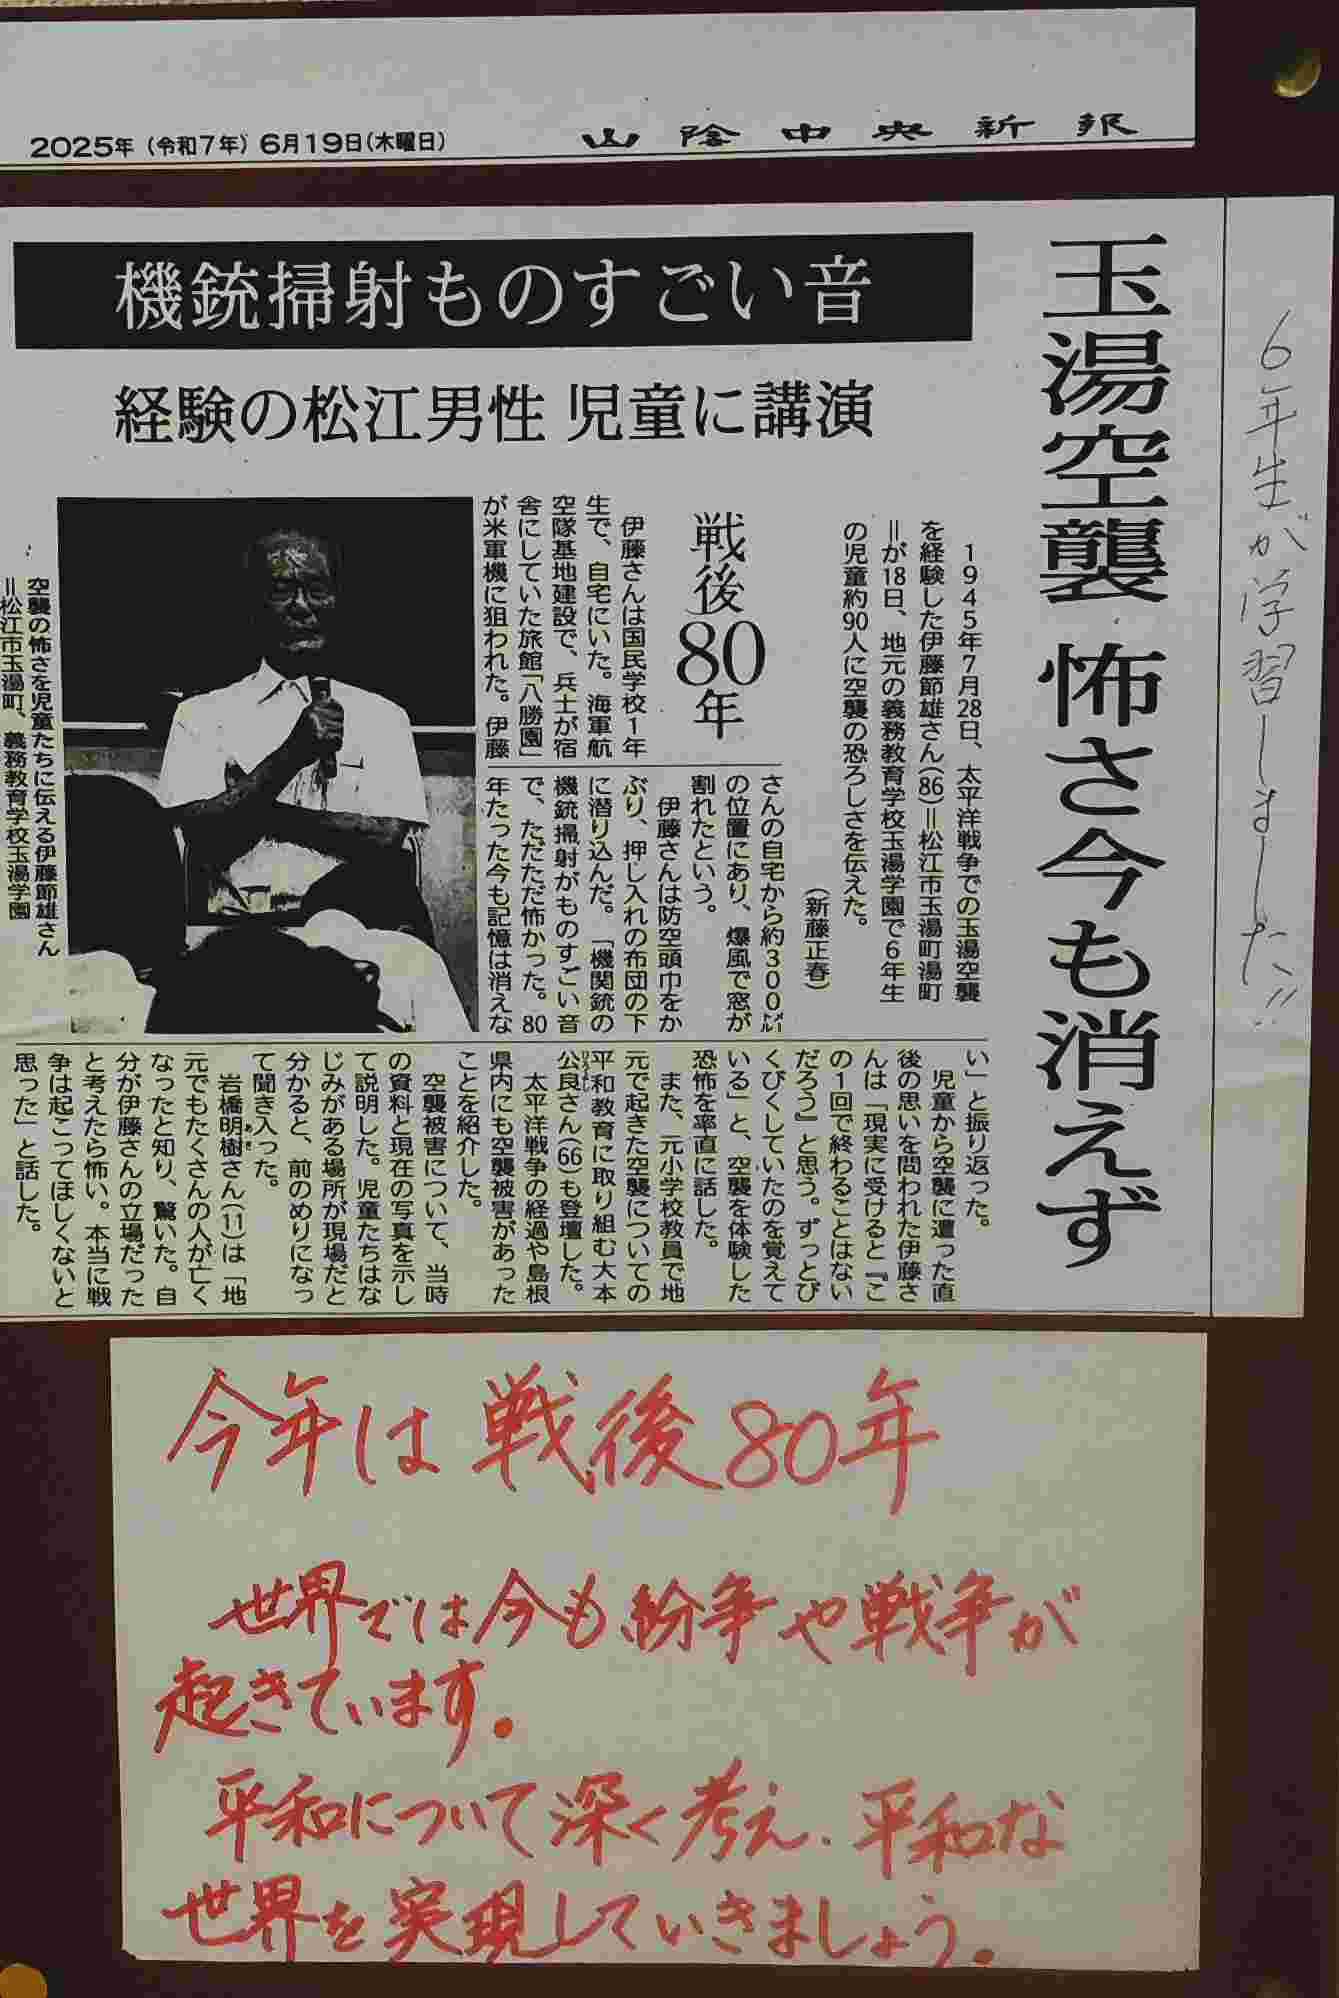 2025年（令和7年）6月19日（木曜日）
山陰中央新報
玉湯空襲 怖さ今も消えず
機銃掃射ものすごい音
経験の松江男性 児童に講演
6年生が学習しました!!
1945年7月28日、太平洋戦争での玉湯空襲
を経験した伊藤節雄さん（86）＝松江市玉湯町湯町
＝が18日、地元の義務教育学校玉湯学園で6年生
の児童約90人に空襲の恐ろしさを伝えた。
（新藤正春）
戦後80年
伊藤さんは国民学校1年
生で、自宅にいた。海軍航
空隊基地建設で、兵士が宿
舎にしていた旅館「八勝園」
が米軍機に狙われた。伊藤
さんの自宅から約300㍍
の位置にあり、爆風で窓が
割れたという。
伊藤さんは防空頭巾をか
ぶり、押し入れの布団の下
に潜り込んだ。「機関銃の
機銃掃射がものすごい音
で、ただただ怖かった。80
年たった今も記憶は消えな
い」と振り返った。
児童から空襲に遭った直
後の思いを問われた伊藤さ
んは「現実に受けると『こ
の1回で終わることはない
だろう』と思う。ずっとび
くびくしていたのを覚えて
いる」と、空襲を体験した
恐怖を率直に話した。
また、元小学校教員で地
元で起きた空襲についての
平和教育に取り組む大本
公良さん（66）も登壇した。
太平洋戦争の経過や島根
県内にも空襲被害があった
ことを紹介した。
空襲被害について、当時
の資料と現在の写真を示し
て説明した。児童たちはな
じみがある場所が現場だと
分かると、前のめりになっ
て聞き入った。
岩橋明樹さん（11）は「地
元でもたくさんの人が亡く
なったと知り、驚いた。自
分が伊藤さんの立場だった
と考えたら怖い。本当に戦
争は起こってほしくないと
思った」と話した。
空襲の怖さを児童たちに伝える伊藤節雄さん
＝松江市玉湯町、義務教育学校玉湯学園
今年は戦後80年
世界では今も紛争や戦争が
起きています。
平和について深く考え、平和な
世界を実現していきましょう。